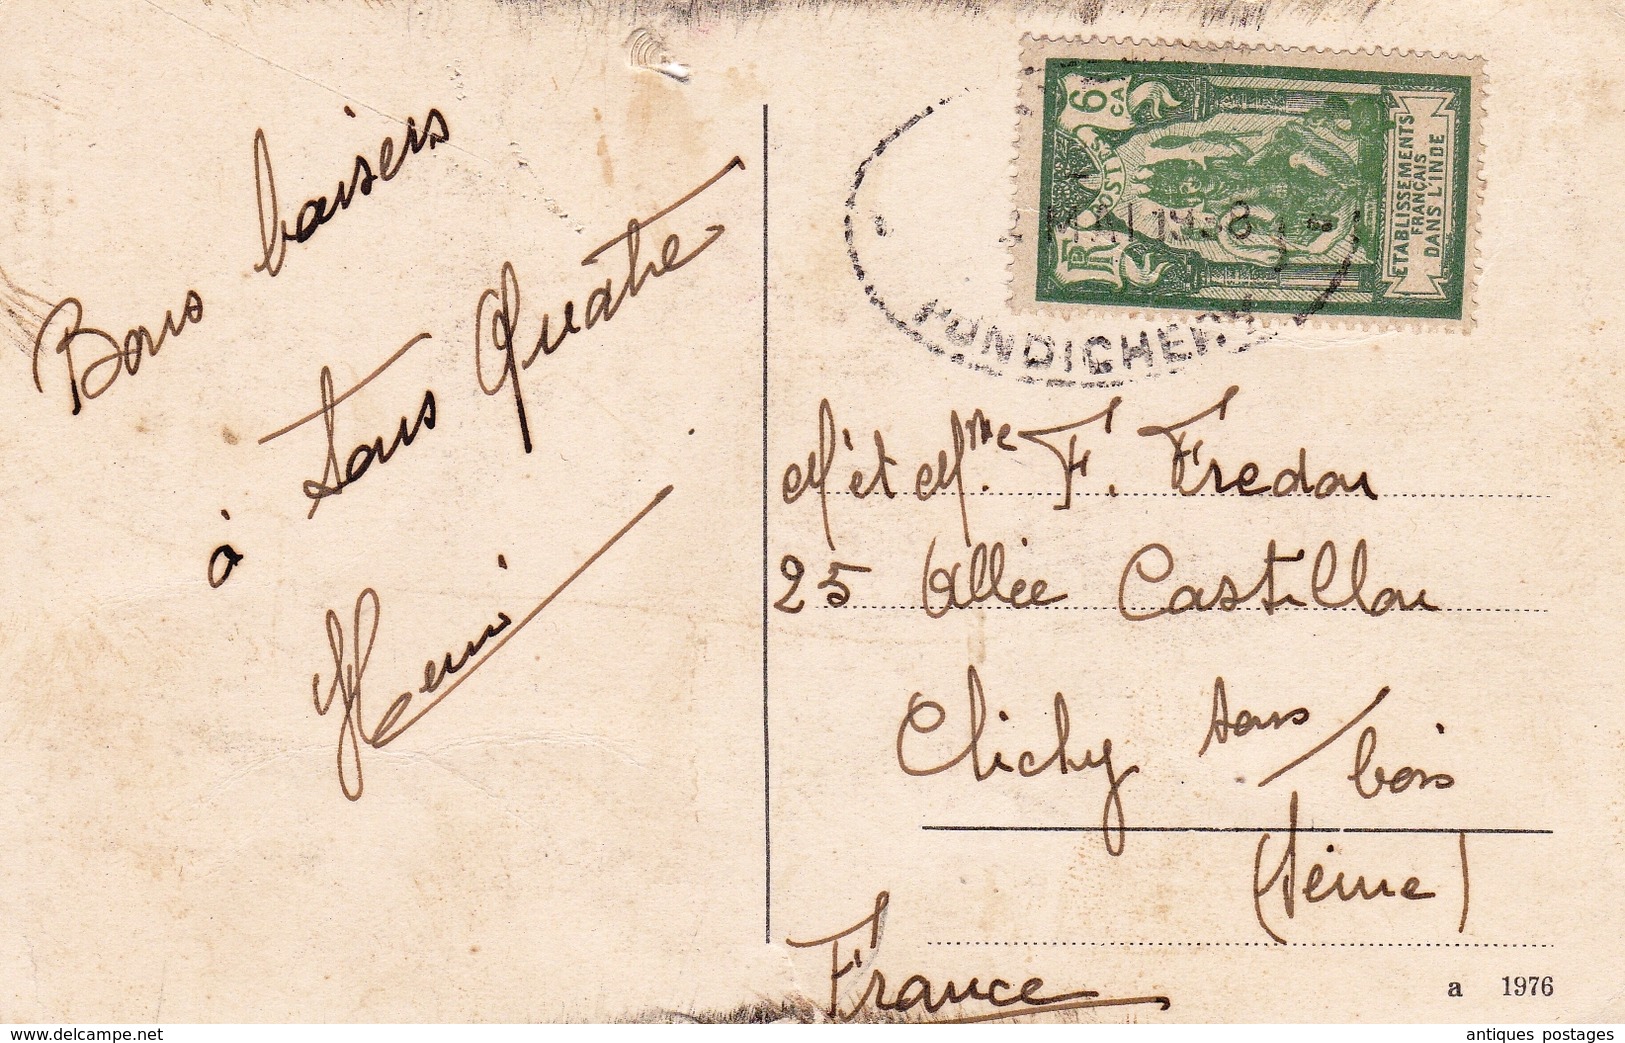 Bons baisers
à tous Quatre
Henri
6
CA
POSTES
RF
ETABLISSEMENTS
FRANÇAIS
DANS L'INDE
MAI 1938
PONDICHERY
Mr et Mme F. Fredou
25 Allée Castillou
Clichy sous / bois
(Seine)
France
a 1976
delcampe.net
antiques postages